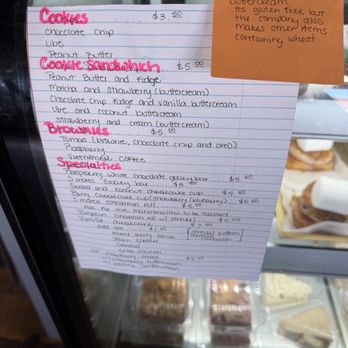 buttercream
its gluten free but
the company also
makes other items
containing wheat
Cookies $3.50
chocolate chip
Ube
Peanut Butter
Cookie Sandwhich $5.00
Peanut Butter and Fudge
Matcha and Strawberry (buttercream)
Chocolate Chip Fudge and vanilla buttercream
Ube and coconut buttercream
Strawberry and cream (buttercream)
Brownies $5.00
Famous (brownie, chocolate chip and oreo)
Raspberry
Vietnamese coffee
Specialties
Raspberry white chocolate gooey bar $5.00
S'mores Gooey bar $5.00
Guava and coconut cheesecake cup
Berry cheesecake cup (strawberry/blueberry) $5.00
S'mores cinnamon roll $6.00
Ask for the marshmallow to be toasted
Vanilla cheesecake $7.00
Add ons $1.00
Mixed berry sauce
caramel
strawberry buttercream
vanilla buttercream